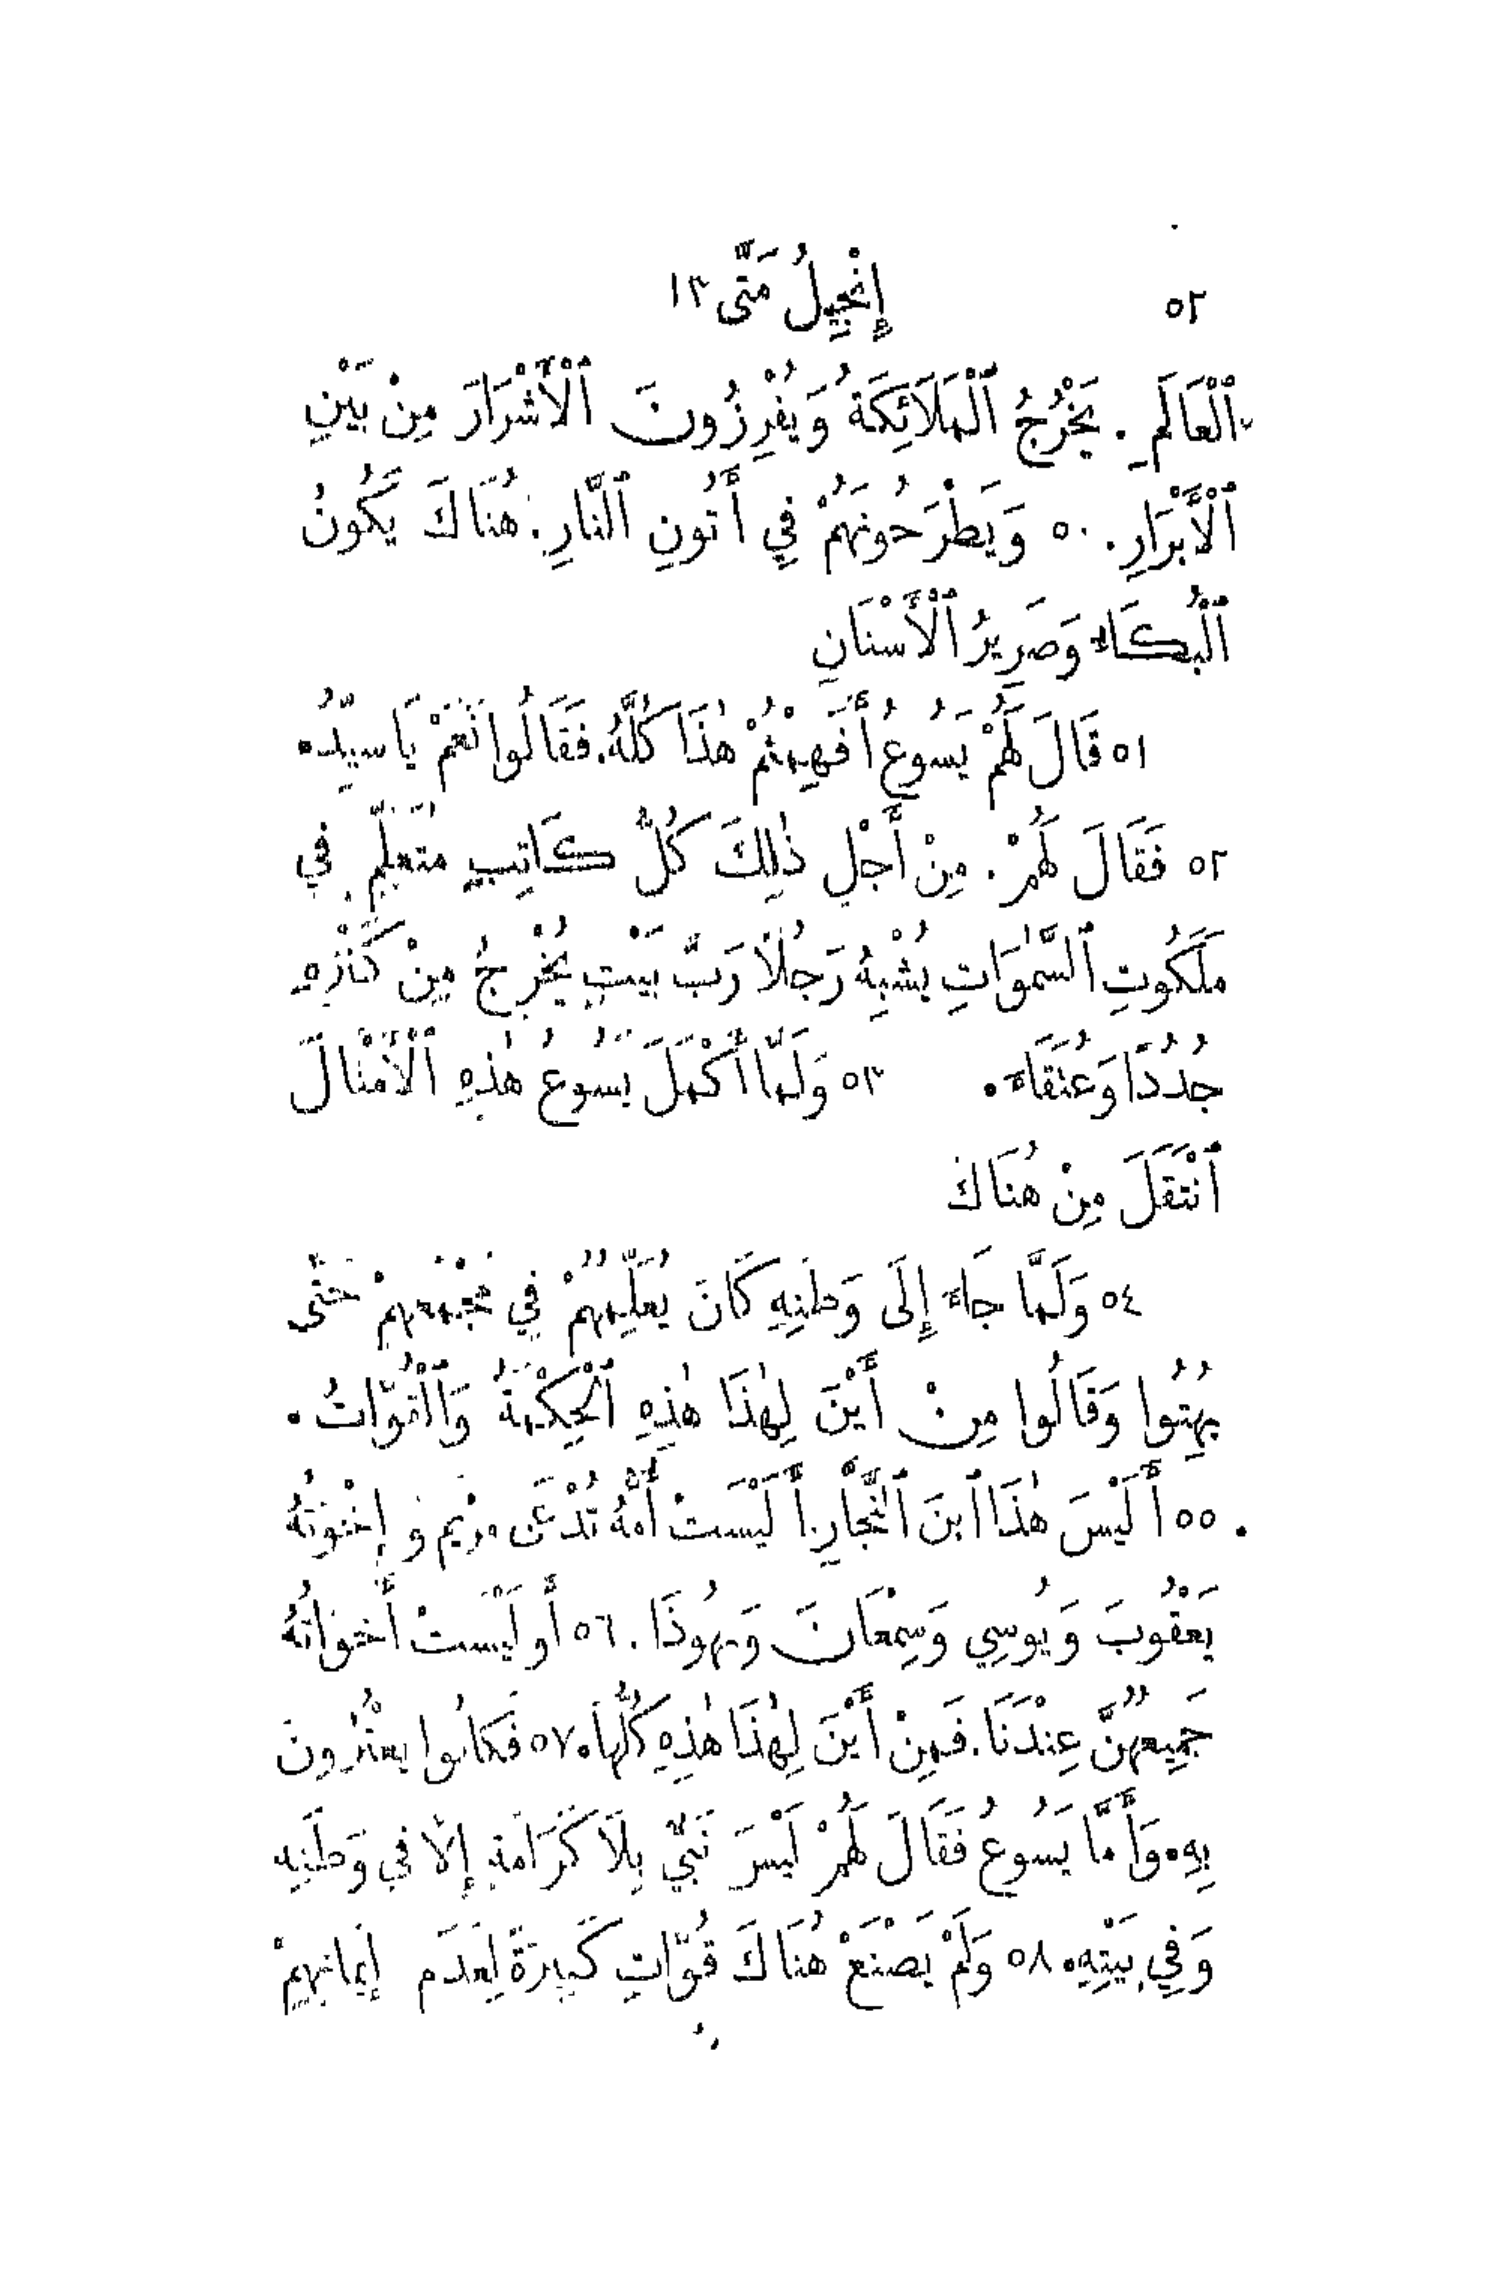 ٥٢ إِنْجِيلُ مَتَّى ١٣
ٱلْعَالَمِ. يَخْرُجُ ٱلْمَلَائِكَةُ وَيُفْرِزُونَ ٱلْأَشْرَارَ مِنْ بَيْنِ
ٱلْأَبْرَارِ. ٥٠ وَيَطْرَحُونَهُمْ فِي أَتُونِ ٱلنَّارِ. هُنَاكَ يَكُونُ
ٱلْبُكَاءُ وَصَرِيرُ ٱلْأَسْنَانِ
٥١ قَالَ لَهُمْ يَسُوعُ أَفَهِمْتُمْ هٰذَا كُلَّهُ. فَقَالُوا نَعَمْ يَا سَيِّدُ.
٥٢ فَقَالَ لَهُمْ. مِنْ أَجْلِ ذٰلِكَ كُلُّ كَاتِبٍ مُتَعَلِّمٍ فِي
مَلَكُوتِ ٱلسَّمٰوَاتِ يُشْبِهُ رَجُلًا رَبَّ بَيْتٍ يُخْرِجُ مِنْ كَنْزِهِ
جُدُدًا وَعُتَقَاءَ. ٥٣ وَلَمَّا أَكْمَلَ يَسُوعُ هٰذِهِ ٱلْأَمْثَالَ
ٱنْتَقَلَ مِنْ هُنَاكَ
٥٤ وَلَمَّا جَاءَ إِلَى وَطَنِهِ كَانَ يُعَلِّمُهُمْ فِي مَجْمَعِهِمْ حَتَّى
بُهِتُوا وَقَالُوا مِنْ أَيْنَ لِهٰذَا هٰذِهِ ٱلْحِكْمَةُ وَٱلْقُوَّاتُ.
٥٥ أَلَيْسَ هٰذَا ٱبْنَ ٱلنَّجَّارِ. أَلَيْسَتْ أُمُّهُ تُدْعَى مَرْيَمَ وَإِخْوَتُهُ
يَعْقُوبَ وَيُوسِي وَسِمْعَانَ وَيَهُوذَا. ٥٦ أَوَلَيْسَتْ أَخَوَاتُهُ
جَمِيعُهُنَّ عِنْدَنَا. فَمِنْ أَيْنَ لِهٰذَا هٰذِهِ كُلُّهَا. ٥٧ فَكَانُوا يَعْثُرُونَ
بِهِ. وَأَمَّا يَسُوعُ فَقَالَ لَهُمْ لَيْسَ نَبِيٌّ بِلَا كَرَامَةٍ إِلَّا فِي وَطَنِهِ
وَفِي بَيْتِهِ. ٥٨ وَلَمْ يَصْنَعْ هُنَاكَ قُوَّاتٍ كَثِيرَةً لِعَدَمِ إِيمَانِهِمْ